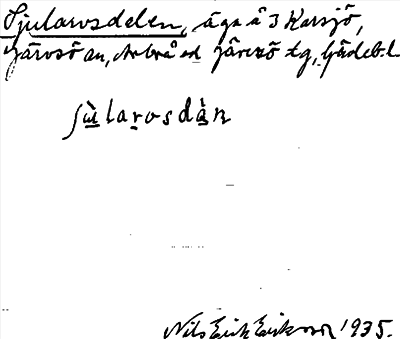 Sjularvsdelen, äga å 3 Karsjö,
Järvsö sn, Arbrå o Järvsö tg, Gävleb. l.
ʃùlarvsdàn
Nils Erik Eriksson 1935.